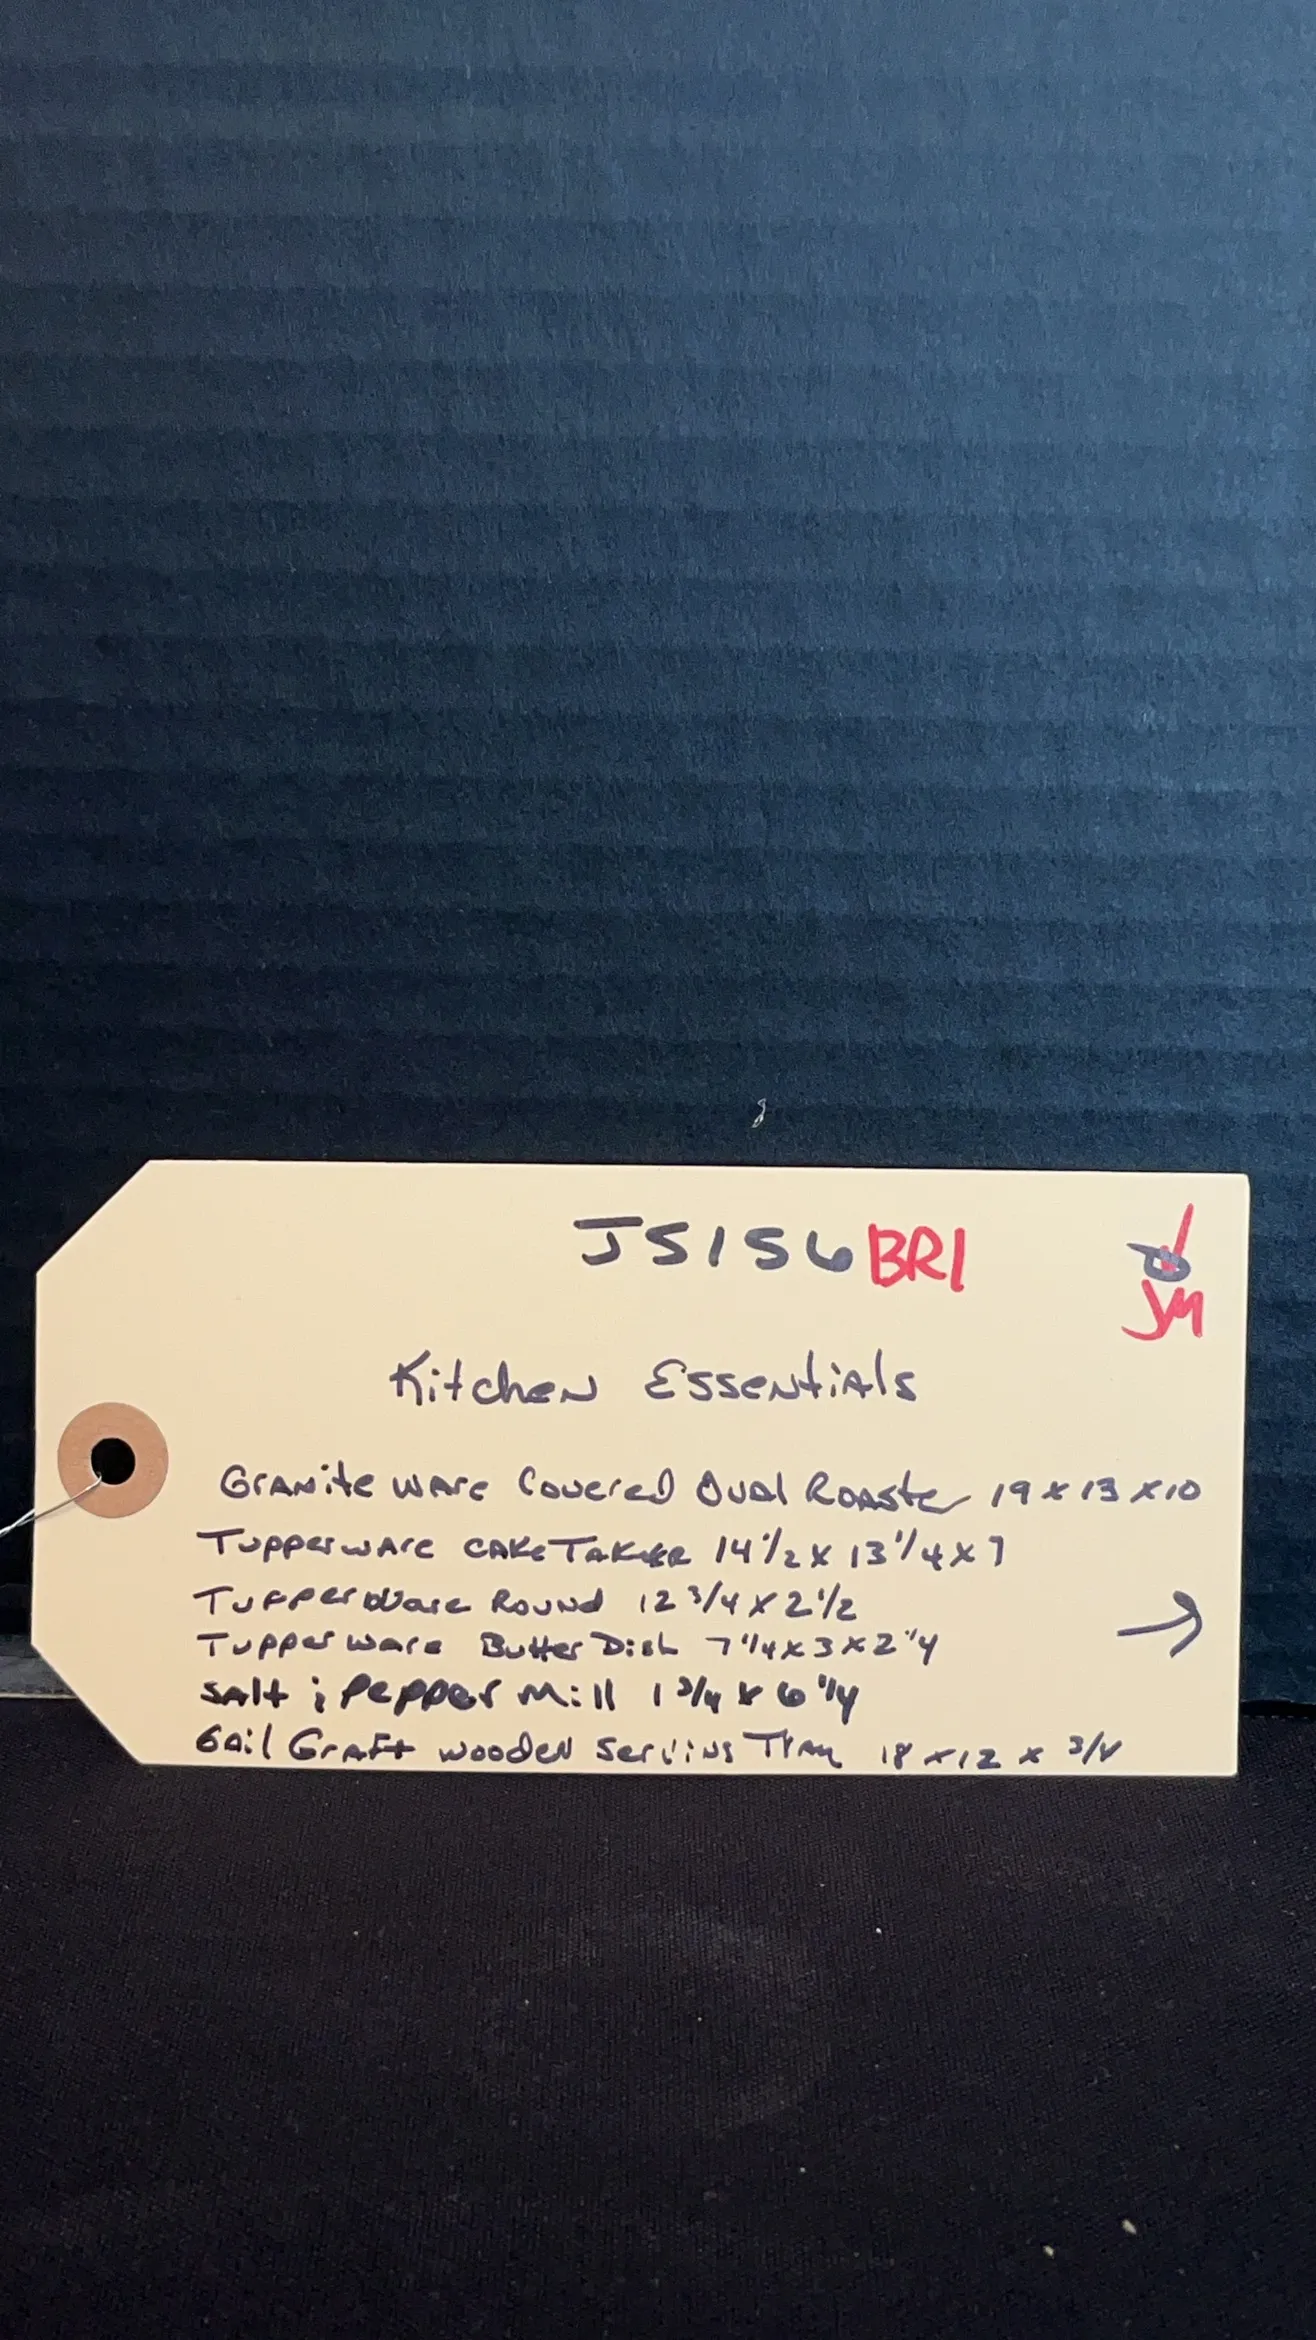 JS156 BR1
JM
Kitchen Essentials
Graniteware Covered Oval Roaster 19 x 13 x 10
Tupperware Cake Taker 14 1/2 x 13 1/4 x 7
Tupperware Round 12 3/4 x 2 1/2
Tupperware Butter Dish 7 1/4 x 3 x 2 1/4
→
Salt & Pepper Mill 1 3/4 x 6 1/4
Gail Graft wooden Serving Tray 18 x 12 x 3/4